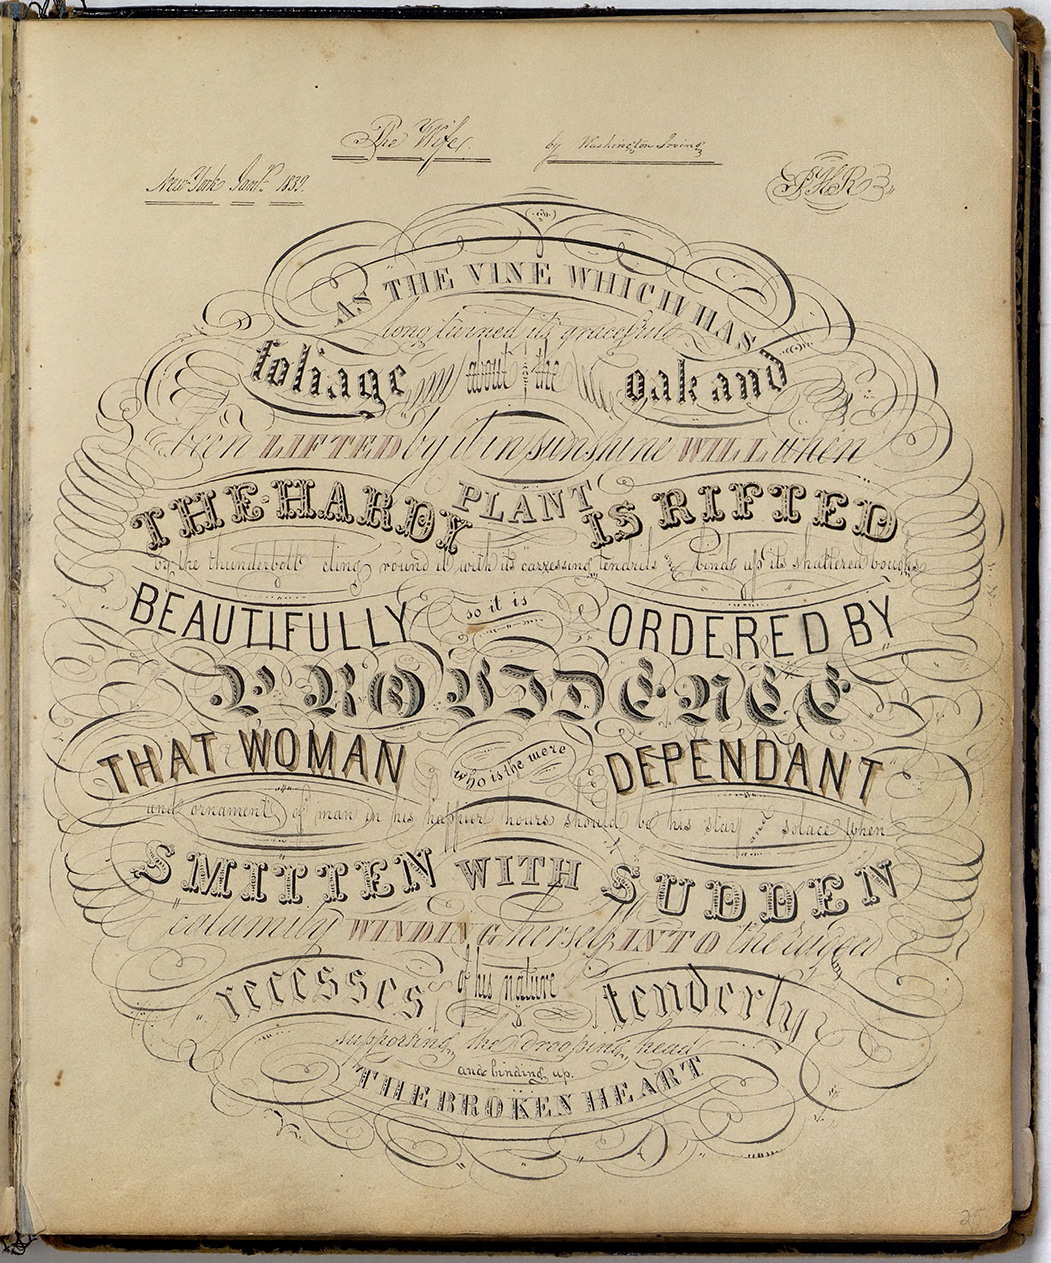 The Wife. by Washington Irving
New-York Jany. 1839. SHR
AS THE VINE WHICH HAS
long twined its graceful
foliage about the oak and
been LIFTED by it in sunshine WILL when
THE HARDY PLANT IS RIFTED
by the thunderbolt cling round it with its carressing tendrils & bind up its shattered boughs
BEAUTIFULLY so it is ORDERED BY
PROVIDENCE
THAT WOMAN who is the mere DEPENDANT
and ornament of man in his happier hours should be his stay and solace when
SMITTEN WITH SUDDEN
calamity WINDING herself INTO the rugged
recesses of his nature tenderly
supporting the drooping head
and binding up.
THE BROKEN HEART
25